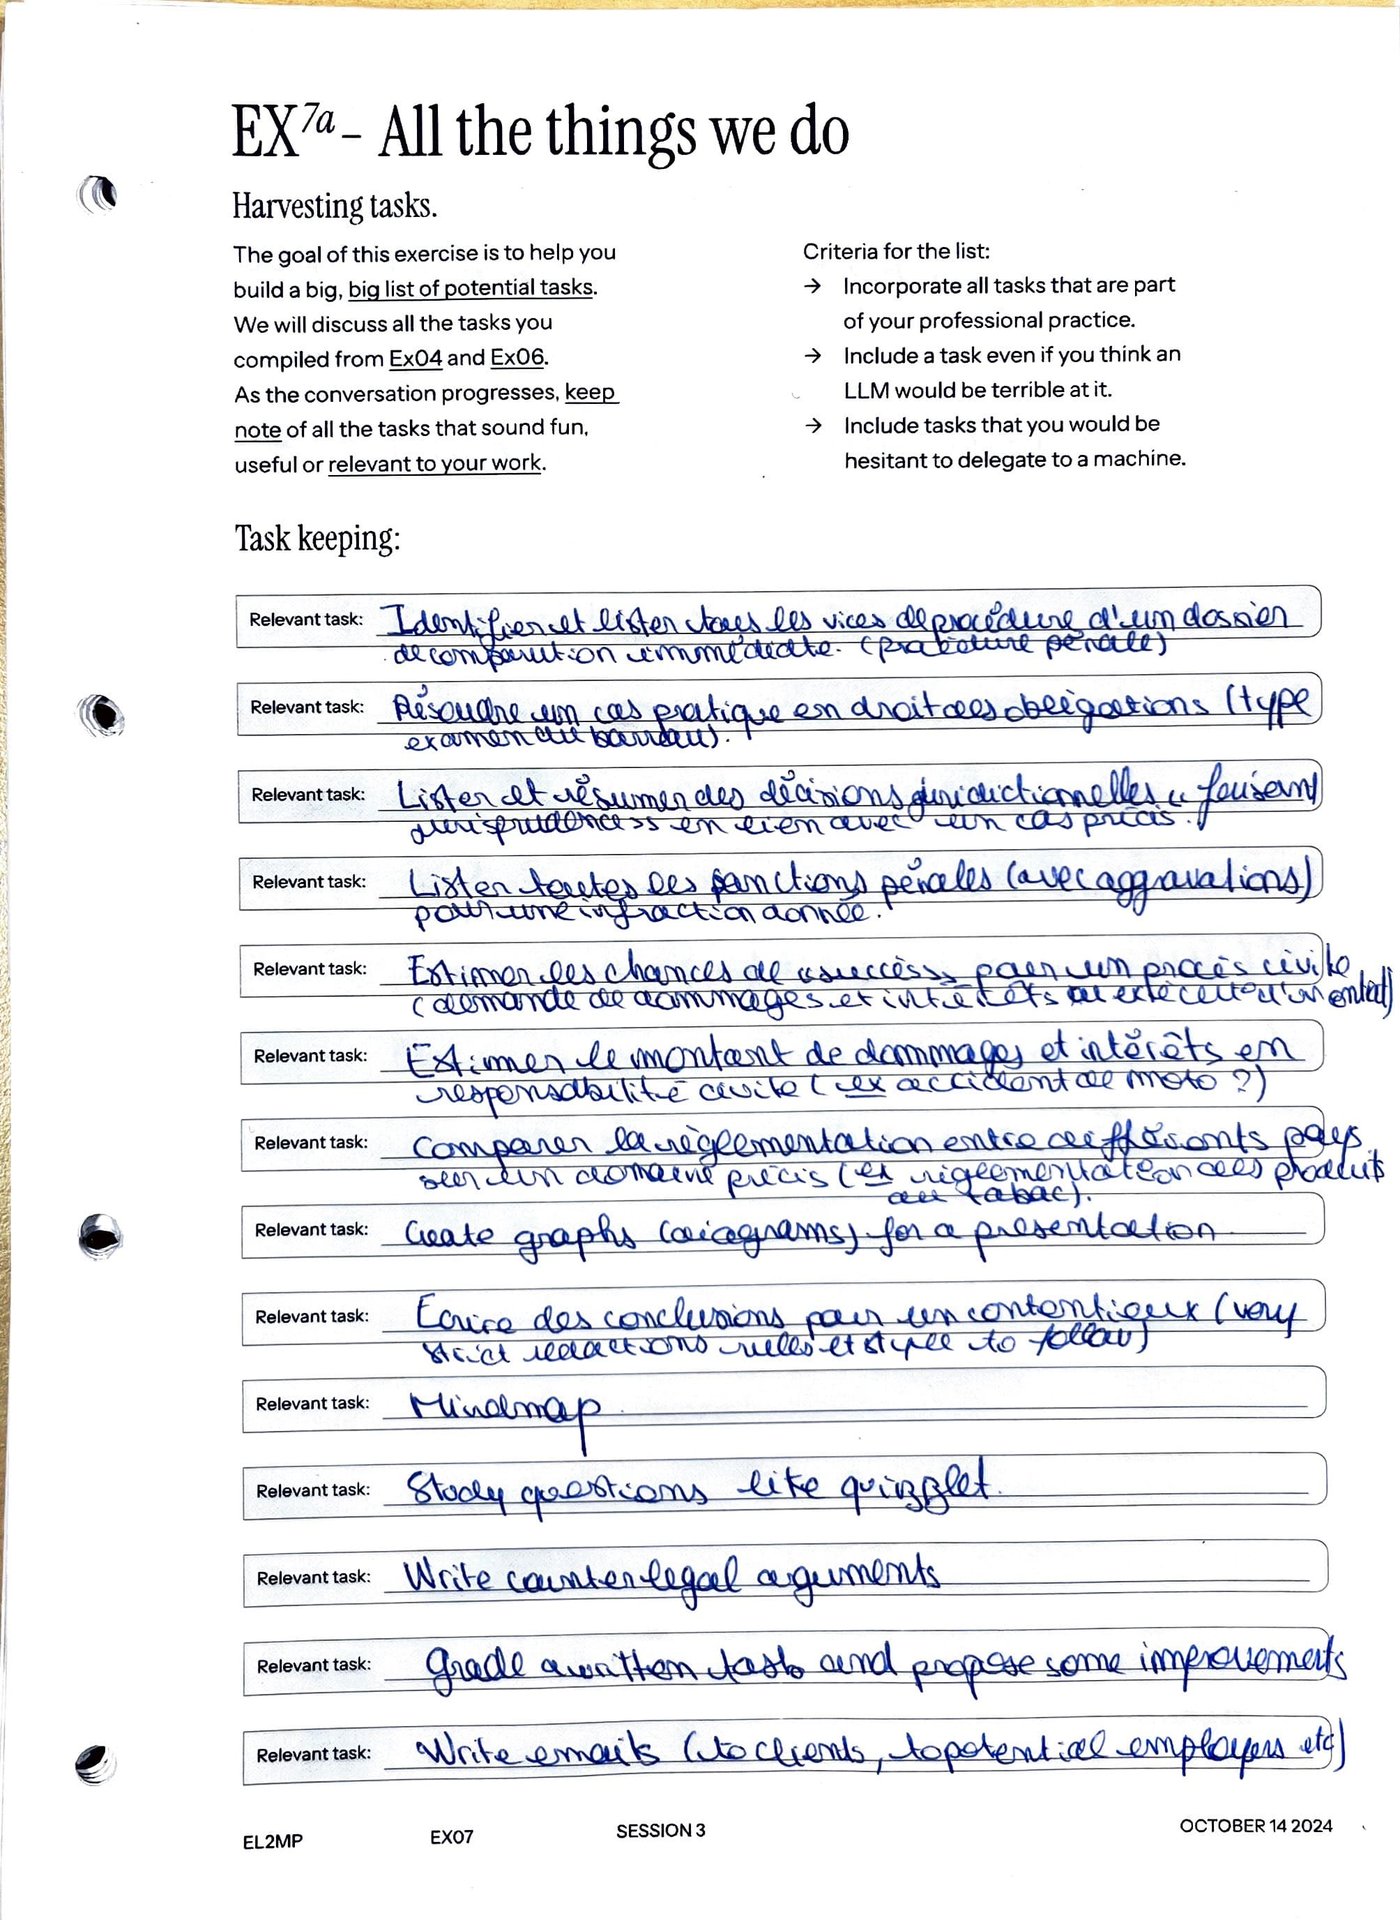 EX7a – All the things we do
Harvesting tasks.
The goal of this exercise is to help you
build a big, big list of potential tasks.
We will discuss all the tasks you
compiled from Ex04 and Ex06.
As the conversation progresses, keep
note of all the tasks that sound fun,
useful or relevant to your work.
Criteria for the list:
→ Incorporate all tasks that are part
of your professional practice.
→ Include a task even if you think an
LLM would be terrible at it.
→ Include tasks that you would be
hesitant to delegate to a machine.
Task keeping:
Relevant task: Identifier et lister tous les vices de procédure d'un dossier
de comparution immédiate. (procédure pénale)
Relevant task: Résoudre un cas pratique en droit des obligations (type
examen du barreau).
Relevant task: Lister et résumer des décisions juridictionnelles « faisant
jurisprudence » en lien avec un cas précis.
Relevant task: Lister toutes les sanctions pénales (avec aggravations)
pour une infraction donnée.
Relevant task: Estimer les chances de « succès » pour un procès civile
(demande de dommages et intérêts ou
Relevant task: Estimer le montant de dommages et intérêts en
responsabilité civile (ex accident de moto ?)
Relevant task: Comparer la règlementation entre différents pays
sur un domaine précis (ex règlementation des produits
du tabac).
Relevant task: Create graphs (diagrams) for a presentation
Relevant task: Ecrire des conclusions pour un contentieux (very
strict redactions rules et style to follow)
Relevant task: Mindmap
Relevant task: Study questions like quizzlet.
Relevant task: Write counter legal arguments
Relevant task: Grade a written task and propose some improvements
Relevant task: Write emails (to clients, to potential employers etc)
EL2MP
EX07
SESSION 3
OCTOBER 14 2024